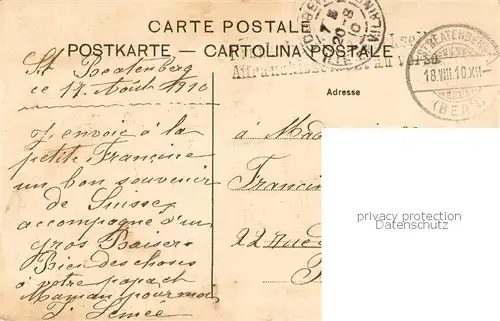 CARTE POSTALE
POSTKARTE — CARTOLINA POSTALE
Adresse
Affranchissement au verso
ST BEATENBERG
18.VIII.10.XII–
(BERN)
St Beatenberg
ce 17 Août 1910
J'envoie à la
petite Francine
un bon souvenir
de Suisse,
accompagné d'un
gros Baiser
Bien des choses
à votre papa et
Maman pour moi
à Mad
Francin
22 Rue
privacy protection
Datenschutz